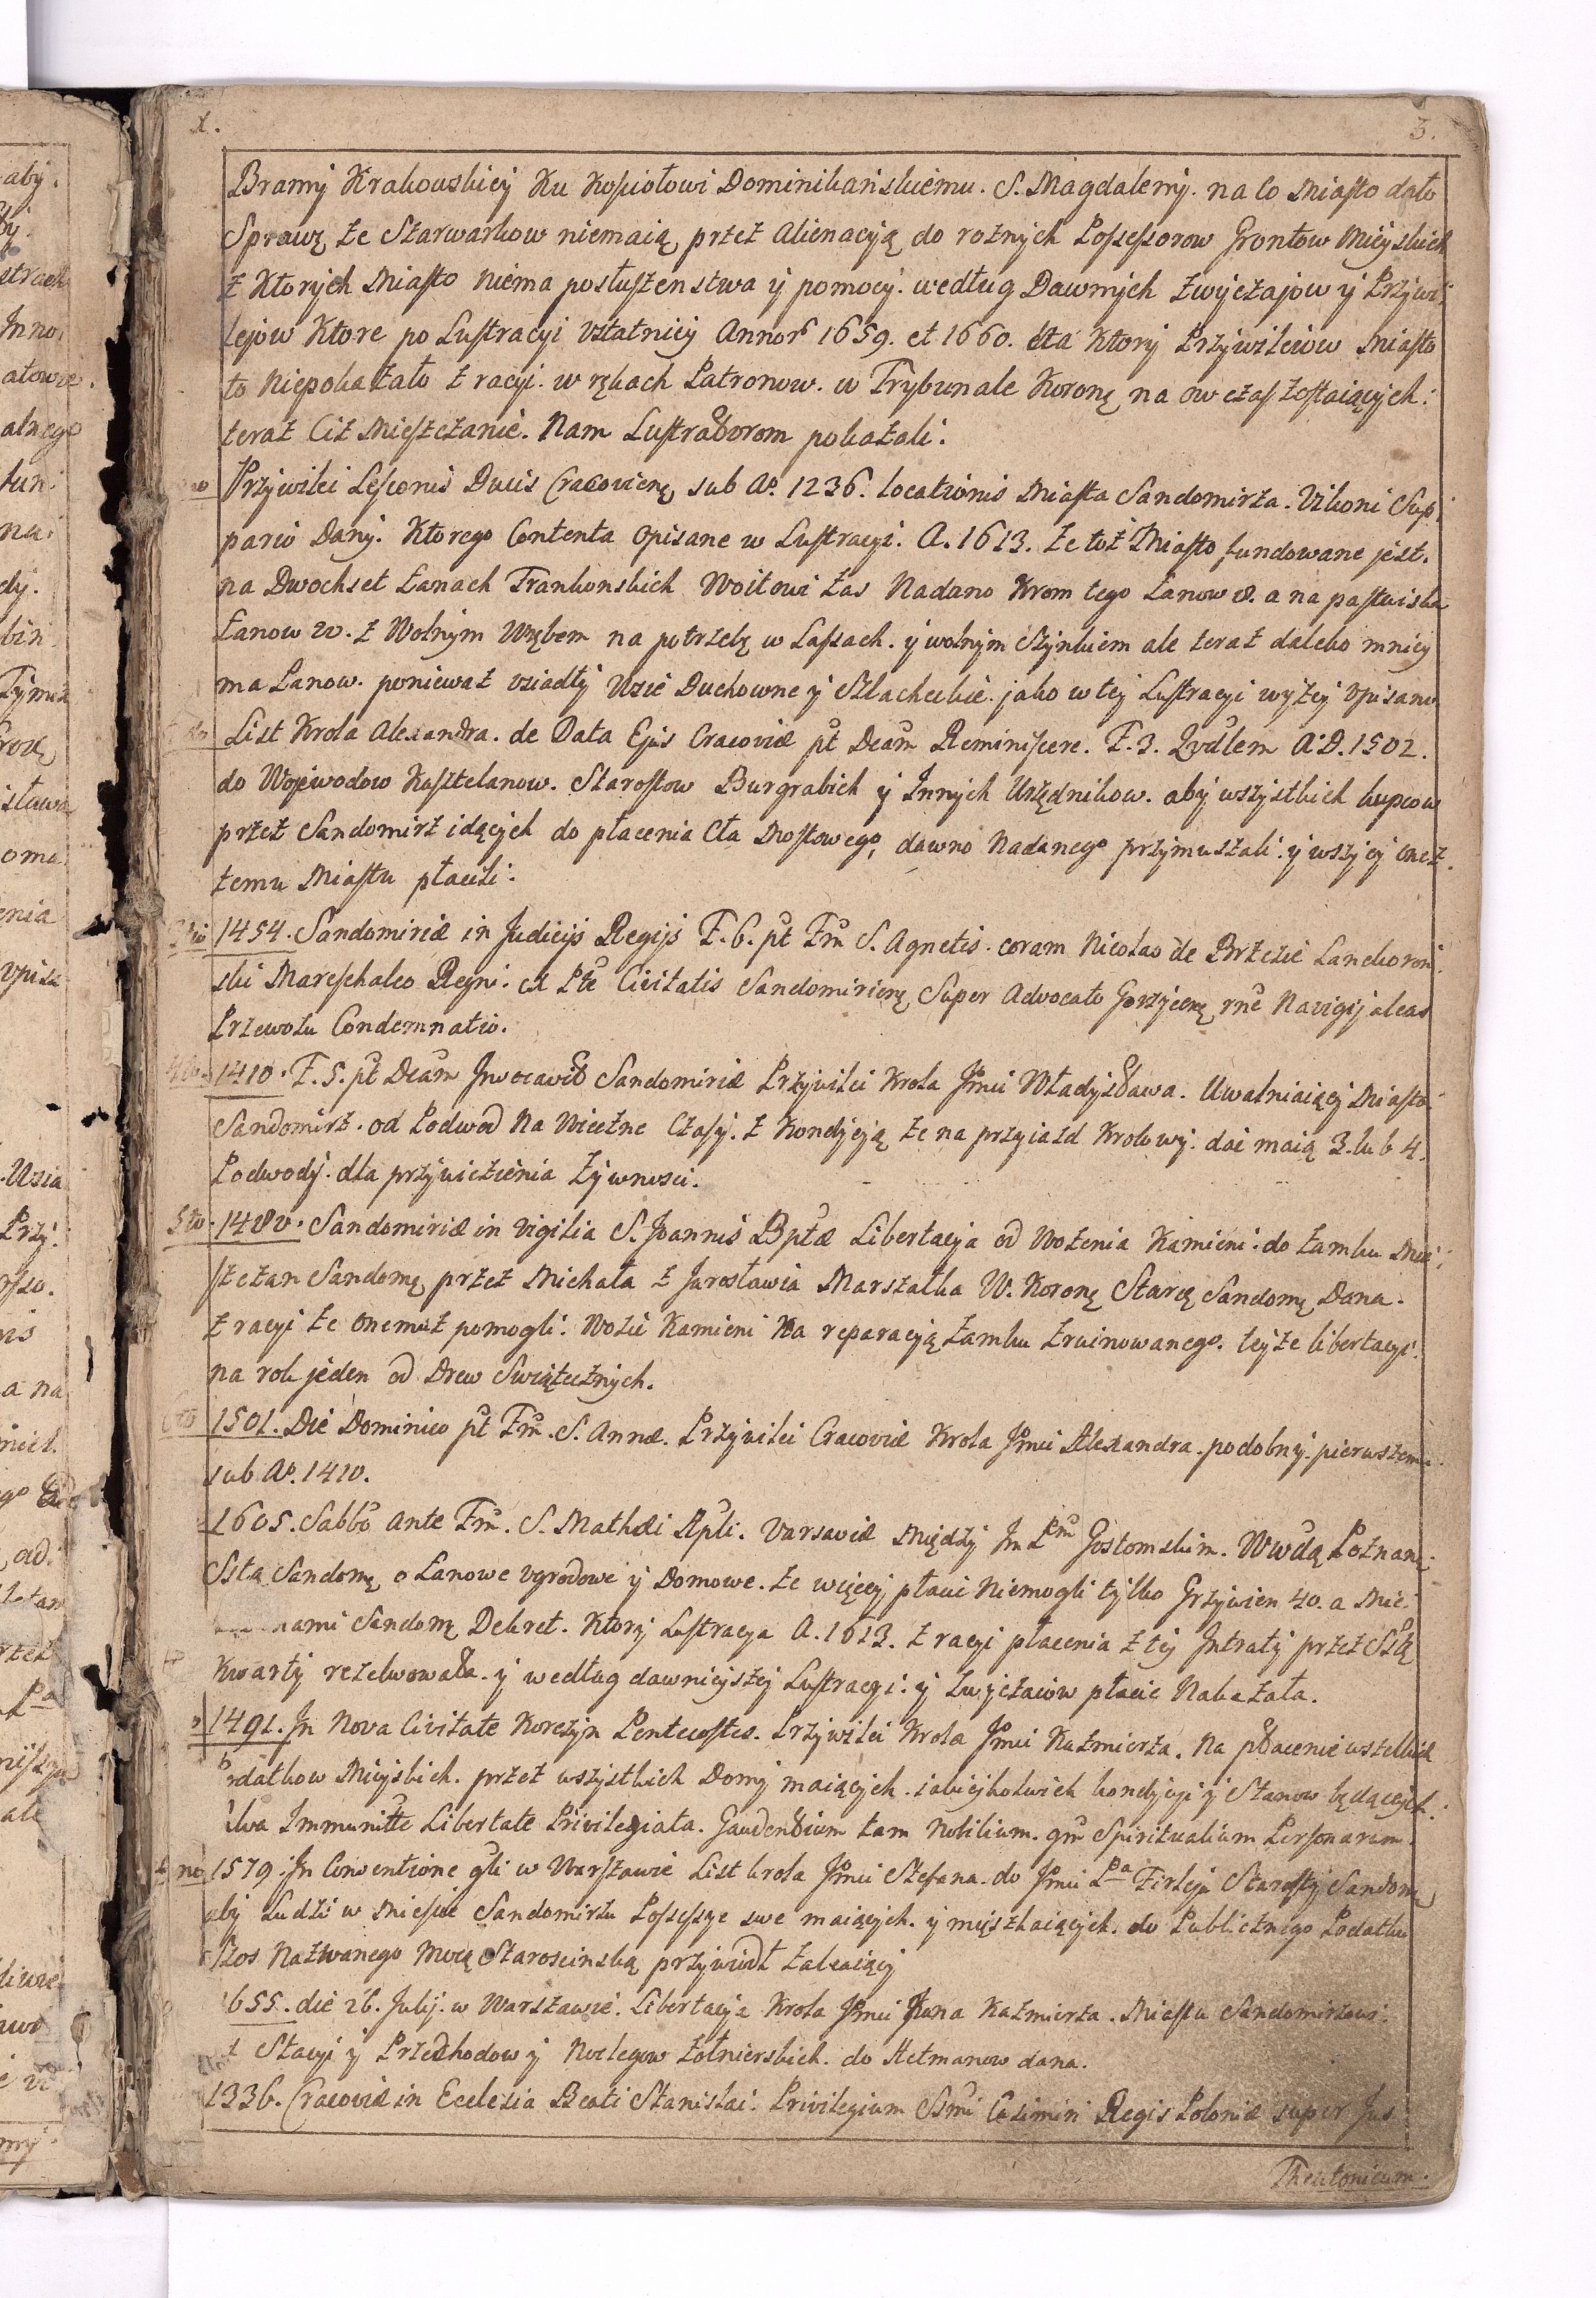 1. 3.
Bramy Krakowskiey Ku Kosciołowi Dominikańskiemu. S. Magdaleny. na co Miasto dało
Sprawę że Starwarkow niemaią przez Alienacyą do roznych Possessorow Grontow Mieyskich
z Ktorych Miasto niema posłuszenstwa y pomocy. według Dawnych zwyczajow y Przywi:
lejow Ktore po Lustracyi ostatniey Annor 1659. et 1660. dla Ktory Przywileiow Miasto
to Niepokazało z racyi. w rękach Patronow. w Trybunale Koronę na ow czas zostaiących:
teraz Ciż Mieszczanie. Nam Lustratorom pokazali.
Przywilei Lesconis Ducis Cracovienę sub Ao. 1236. locationis Miasta Sandomirza. Vikoni Sup:
pario Dany. Ktorego Contenta opisane w Lustracyi. A. 1613. że toż Miasto fundowane jest.
na Dwochset Łanach Frankonskich Woitowi zas Nadano Krom tego Łanow 8. a na pastwiska
Łanow 20. z Wolnym Wrębem na potrzebę w Lassach. y wolnym Szynkiem ale teraz daleko mniey
ma Łanow. poniewaz osiadły Wsie Duchowne y Szlacheckie. jako w tey Lustracyi wyzey opisano
List Krola Alexandra. de Data Ejus Cracoviæ pt Dcam Reminiscere. F. 3. Qvdlem A.D. 1502.
do Wojewodow Kasztelanow. Starostow Burgrabich y Innych Urzędnikow. aby wszystkich kupcow
przez Sandomirz idących do płacenia Cła Mostowego, dawno Nadanego przymuszali. y wszyscy onez
temu Miastu płacili.
3tio 1454. Sandomiriæ in Judicijs Regijs F. 6. pt Fm S. Agnetis. coram Nicolao de Brzezie Lanckoron:
ski Mareschalco Regni. ex Pte Civitatis Sandomirienę Super Advocato Gorzycenę rne Navigij aleas
Przewozu Condemnatio.
4to. 1410. F. 5. pt Dcam Invocavit Sandomiriæ Przywilei Krola Jmci Władysława. Uwalniaiący Miasto
Sandomirz. od Podwod Na Wieczne Czasy. z Kondycyą że na przyiazd Krolowy. dac maią 3. lub 4.
Podwody. dla przywiezienia Zywnosci.
5to. 1480. Sandomiriæ in Vigilia S. Joannis Bptæ Libertacya od Wozenia Kamieni. do Zamku Mie:
szczan Sandomę przez Michała z Jarosławia Marszałka W. Koronę Starę Sandomę Dana.
z racyi że onemuż pomogli. Wozic Kamieni Na reparacyą Zamku Zruinowanego. teyże libertacyi.
na rok jeden od Drew Swiątecznych.
6to 1501. Die Dominico pt Fm. S. Annæ. Przywilei Cracoviæ Krola Jmci Alexandra. podobny. pierwszem
sub Ao. 1410.
1605. Sabbo ante Fm. S. Mathæi Apli. Varsaviæ między Jm Pm Gostomskim. Wwdą Poznanę
Sstą Sandomę o Łanowe ogrodowe y Domowe. że więcey płacic Niemogli tylko Grzywien 40. a Mie
nami Sandomę Dekret. Ktory Lustracya A. 1613. z racyi płacenia z tey Intraty przez Stę
Kwarty rezelwowała. y według dawnieyszey Lustracyi. y zwyczaiow płacic Nakazała.
1491. In Nova Civitate Korczyn Pentecostes. Przywilei Krola Jmci Kazmierza. Na płacenie wszelkich
podatkow Mieyskich. przez wszystkich Domy maiących. iakieykolwiek kondycyi y Stanow będących.
Salva Immunitte Libertate Privilegiata. Gaudentium tam Nobilium. qm Spiritualium Personarum.
1579. In Conventione gli w Warszawie List krola Jmci Stefana. do Jmci Pa Firleja Starosty Sandomę
aby Ludzi w Miescie Sandomirzu Possessye swe maiących. y mięszkaiących. do Publicznego Podatku
Szos Nazwanego Mocą Staroscinską przywiodł zalecaiący
1655. die 26. Julij. w Warszawie. Libertacya Krola Jmci Jana Kazmierza. Miastu Sandomirzowi.
z Stacyi y Przechodow y Noclegow żołnierskich. do Hetmanow dana.
1336. Cracoviæ in Ecclesia Beati Stanislai. Privilegium Ssmi Casimiri Regis Poloniæ super Jus
Theutonicum.